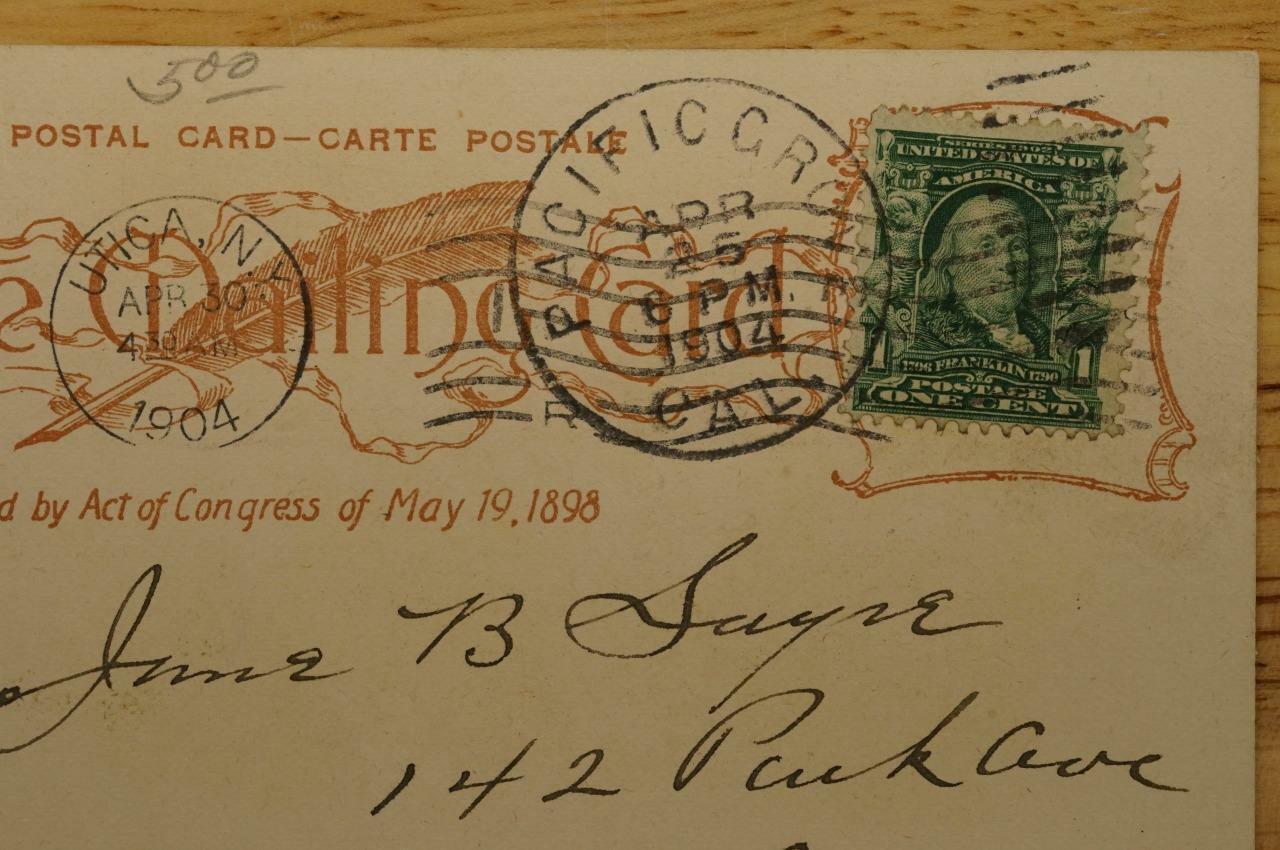 500
POSTAL CARD—CARTE POSTALE
UTICA, N.Y.
APR 30
4 30 AM
1904
Mailing Card
PACIFIC GR
APR
25
6 PM
1904
CAL.
SERIES 1902
UNITED STATES OF
AMERICA
1706 FRANKLIN 1790
1 POSTAGE 1
ONE CENT
d by Act of Congress of May 19, 1898
B Sayre
142 Park Ave